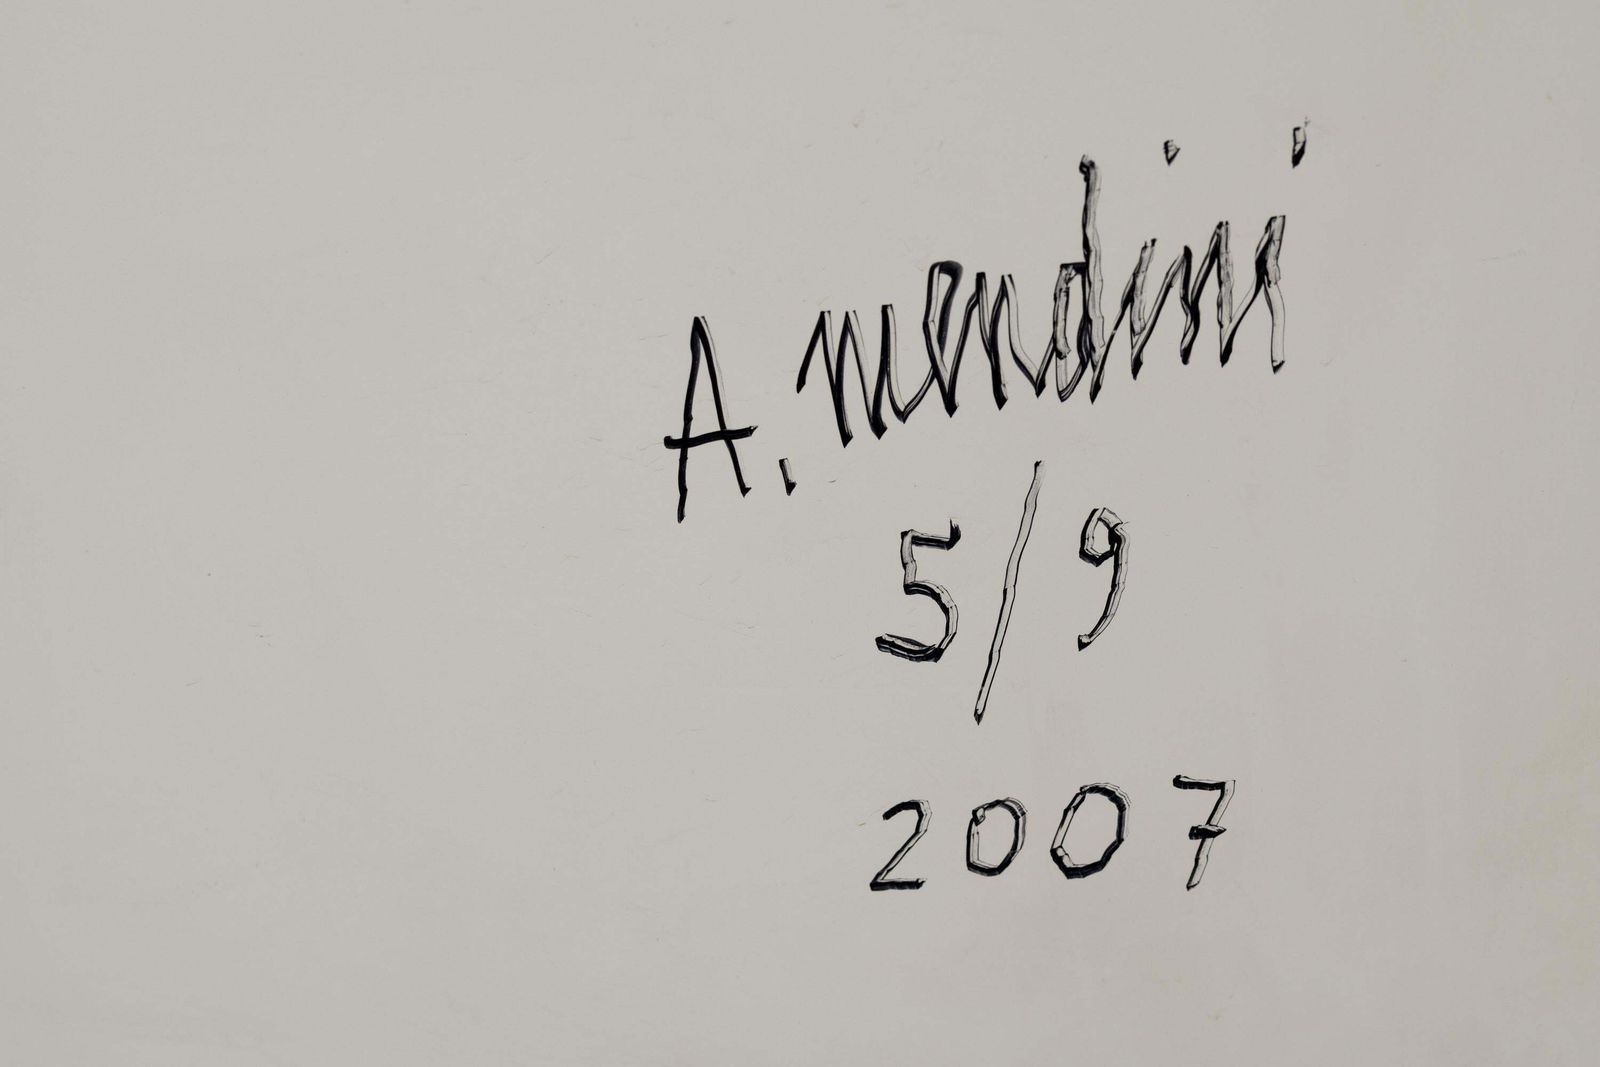 A. mendini
5/9
2007